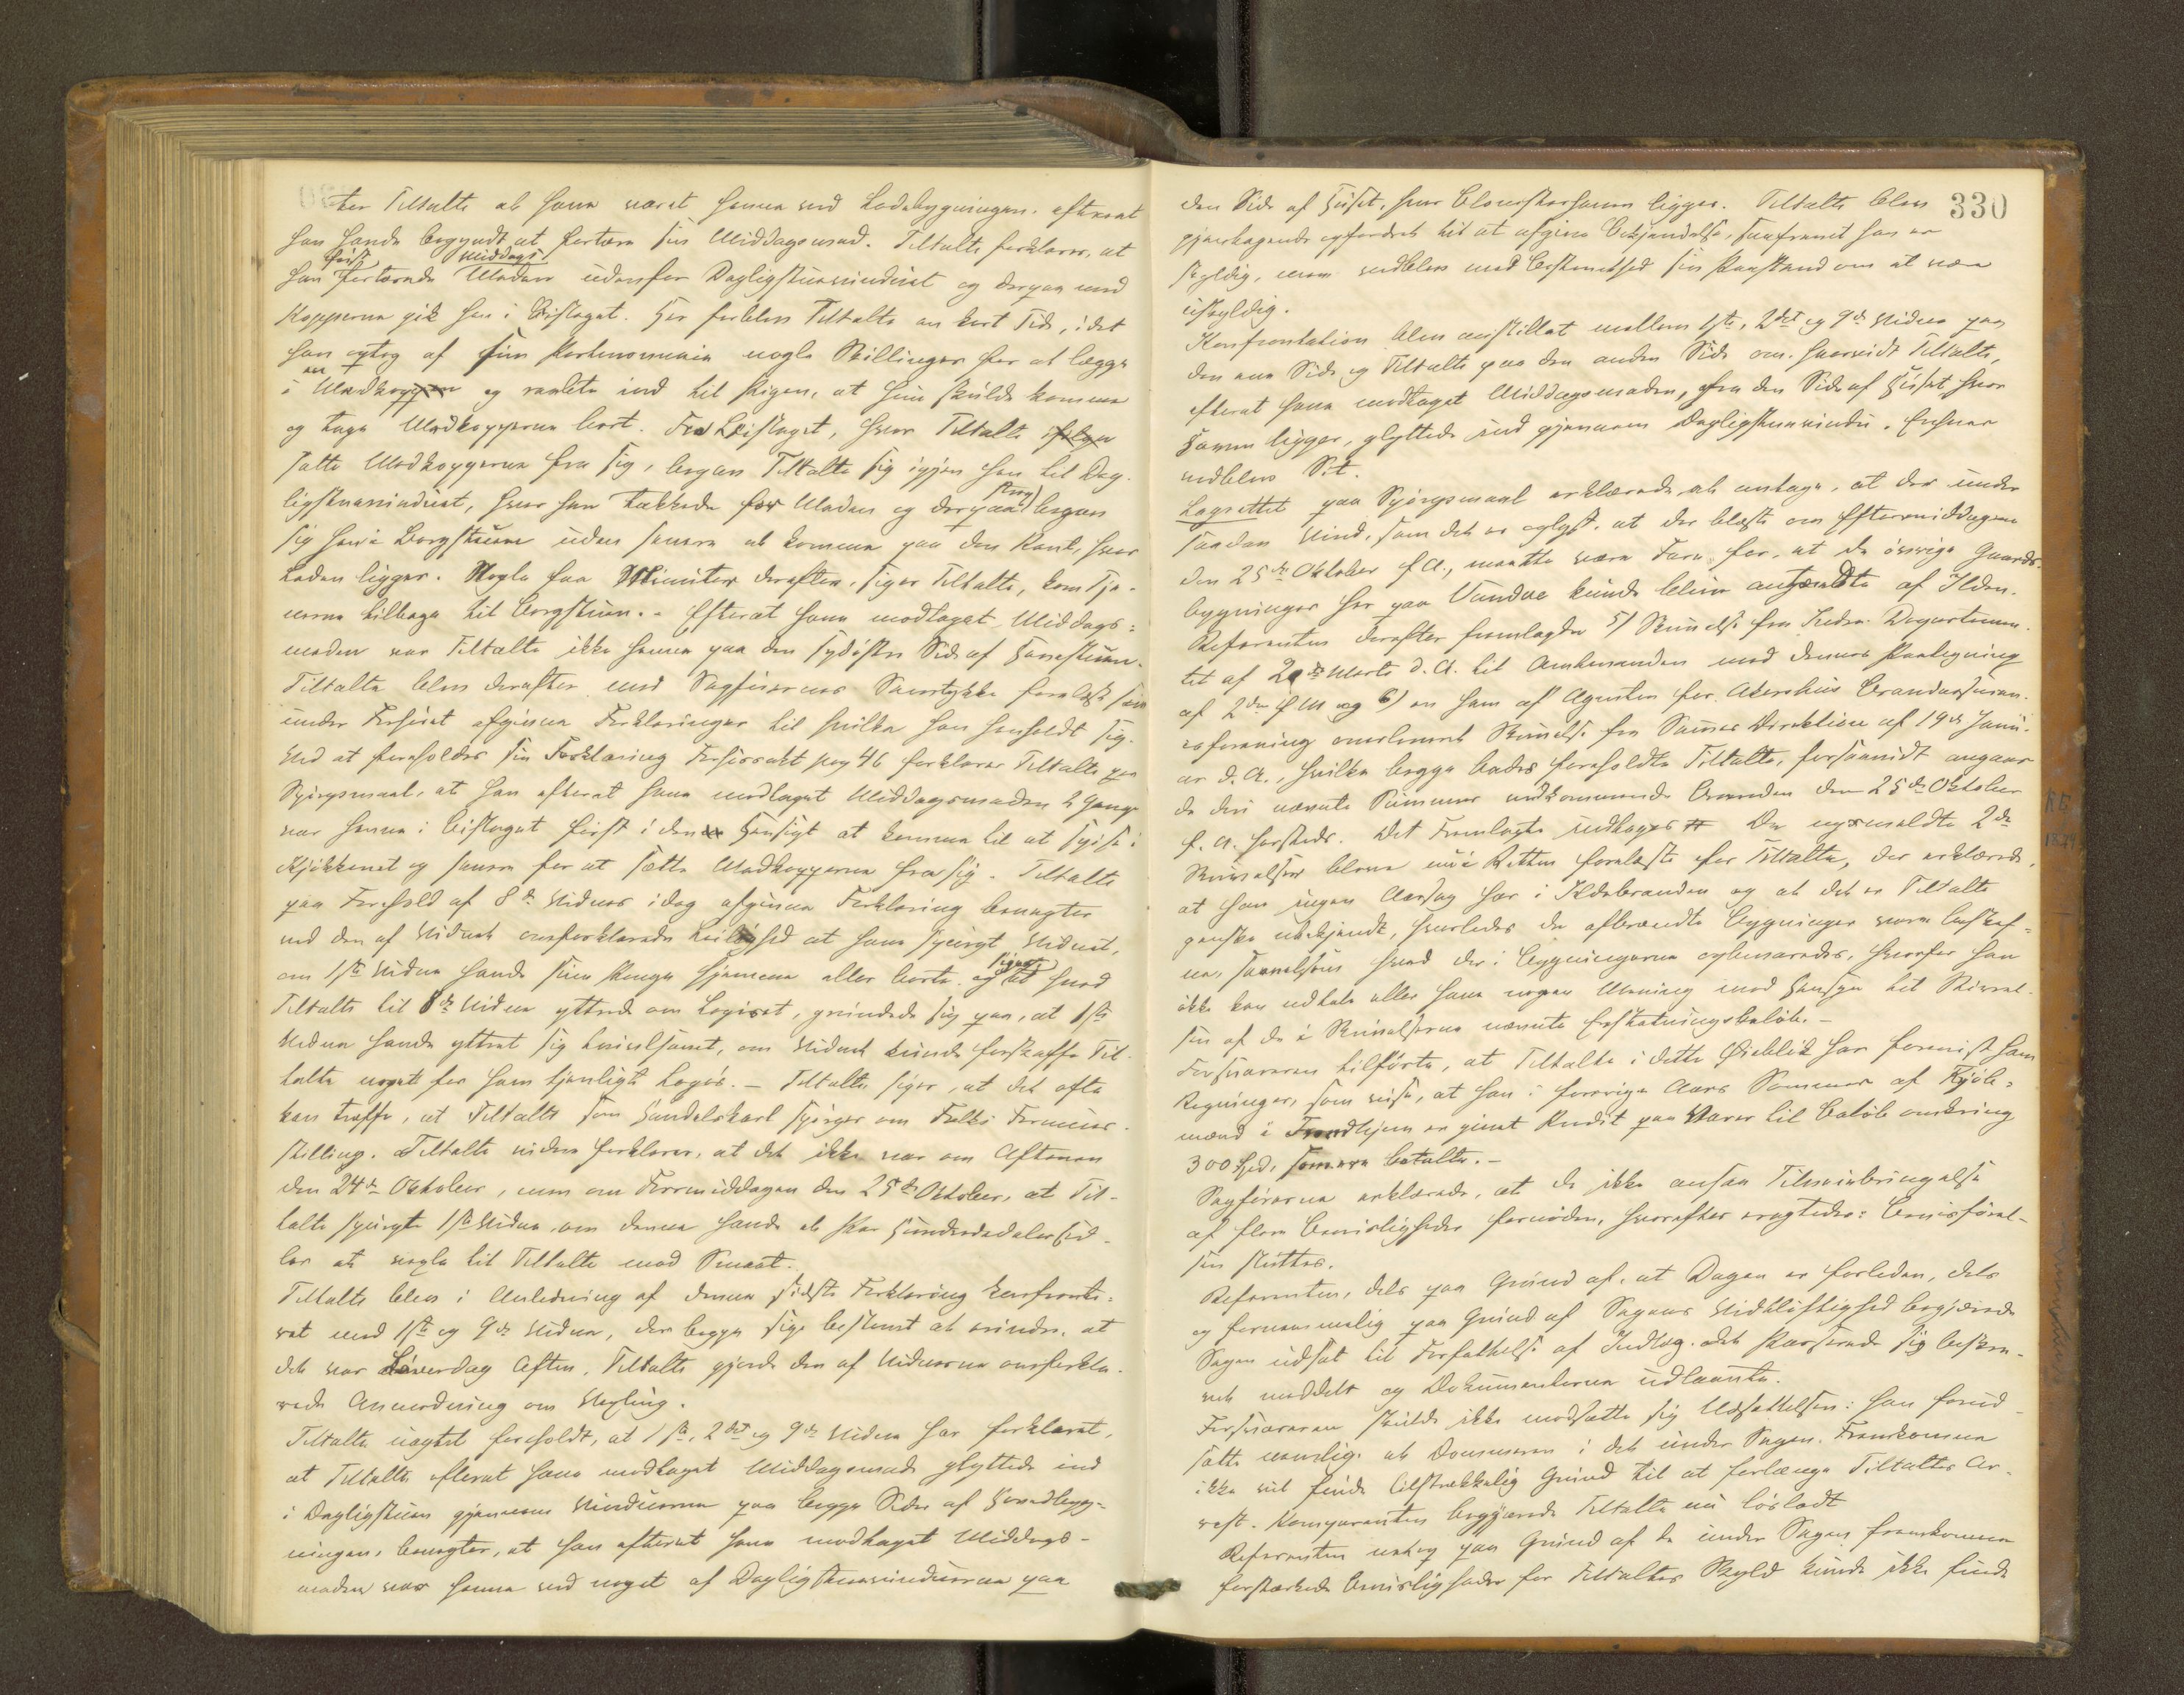 ter Tiltalte at have været henne ved Ladebygningen, efterat
han havde begyndt at fortære sin Middagsmad. Tiltalte forklarer, at
han først fortærede Middags Maden udenfor Dagligstuevinduet og derpaa med
Kopperne gik hen i Bislaget. Her forblev Tiltalte en kort Tid, idet
han optog af sin Portemonnaie nogle Skillinger for at lægge
i en Madkop og raabte ind til Pigen, at hun skulde komme
og tage Madkopperne bort. Fra Bislaget, hvor Tiltalte
satte Madkopperne fra sig, begav Tiltalte sig igjen hen til Dag-
ligstuevinduet, hvor han takkede for Maden og derpaa strax begav
sig hen i Borgstuen uden senere at komme paa den Kant, hvor
Laden ligger. Nogle faa Minuter derefter, siger Tiltalte, kom Tje-
nerne tilbage til Borgstuen. - Efterat have modtaget Middags-
maden var Tiltalte ikke henne paa den sydøstre Side af Hovedstuen.
Tiltalte blev derefter med Sagførernes Samtykke forelæst sine
under Forhøret afgivne Forklaringer til hvilke han henholdt sig.
Ved at foreholdes sin Forklaring Forhørsakt pag 46 forklarer Tiltalte paa
Spørgsmaal, at han efterat have modtaget Middagsmaden 2 Gange
var henne i Bislaget først i den Hensigt at komme til at spise i
Kjøkkenet og senere for at sætte Madkopperne fra sig. Tiltalte
paa Forehold af 8de Vidnes idag afgivne Forklaring benegter
ved den af Vidnet omforklarede Leilighed at have spurgt Vidnet,
om 1ste Vidne havde sine Penge hjemme eller borte, og siger at hvad
Tiltalte til 8de Vidne yttrede om Logiset, grundede sig paa, at 1ste
Vidne havde yttret sig tvivlsomt, om Vidnet kunde forskaffe Til-
talte noget for ham tjenligt Logis. - Tiltalte siger, at det ofte
kan træffe, at Tiltalte som Handelskarl spørger om Folks Formues-
stilling. Tiltalte videre forklarer, at det ikke var om Aftenen
den 24de Oktober, men om Formiddagen den 25de Oktober, at Til-
talte spurgte 1ste Vidne om denne havde et Par Hundredalersed-
ler at vexle til Tiltalte mod Smaat.
Tiltalte blev i Anledning af denne sidste Forklaring konfronte-
ret med 1ste og 9de Vidne, der begge sige bestemt at erindre, at
det var Løverdag Aften, Tiltalte gjorde den af Vidnerne omforkla-
rede Anmodning om Vexling.
Tiltalte uagtet foreholdt, at 1ste, 2det og 9de Vidne har forklaret,
at Tiltalte efterat have modtaget Middagsmad glyttede ind
i Dagligstuen gjennem Vinduerne paa begge Sider af Hovedbyg-
ningen, benegter, at han efterat have modtaget Middags-
maden var henne ved noget af Dagligstuevinduerne paa
330
den Side af Huset, hvor Blomsterhaven ligger. Tiltalte blev
gjentagende opfordret til at afgive Bekjendelse, saafremt han er
skyldig, men vedblev med Bestemthed sin Paastand om at være
uskyldig.
Konfrontation blev anstillet mellem 1ste, 2det og 9de Vidne paa
den ene Side og Tiltalte paa den anden Side om, hvorvidt Tiltalte,
efterat have modtaget Middagsmaden, fra den Side af Huset hvor
Haven ligger, glyttede ind gjennem Dagligstuevindu. Enhver
vedblev Sit.
Lagrettet paa Spørgsmaal erklærede at antage, at der under
saadan Vind, som det er oplyst, at der blæste om Eftermiddagen
den 25de Oktober f. A., maatte være Fare for, at de øvrige Gaards-
bygninger her paa Vandve kunde blive antændte af Ilden.
Referenten derefter fremlagde 5) Skrivelse fra Indre Departemen-
tet af 20de Marts d. A. til Amtmanden med dennes Paategning
af 2den f M og 6) en ham af Agenten for Akershus Brandassuran-
ceforening overleveret Skrivelse fra Sammes Direktion af 19de Janu-
ar d. A., hvilke begge bleves foreholdte Tiltalte, forsaavidt angaar
de deri nævnte Summer vedkommende Branden den 25de Oktober
f. A. hersteds. Det Fremlagte indtages # De opmeldte 2de
Skrivelser bleve nu i Retten forelæste for Tiltalte, der erklærede,
at han ingen Aarsag har i Ildebranden og at det er Tiltalte
ganske ubekjendt, hvorledes de afbrændte Bygninger vare beskaf-
ne, saavelsom hvad der i Bygningerne opbevaredes, hvorfor han
ikke kan udtale eller have nogen Mening med Hensyn til Størrel-
sen af de i Skrivelserne nævnte Erstatningsbeløb. -
Forsvareren tilførte, at Tiltalte i dette Øieblik har forevist ham
Regninger, som vise, at han i forrige Aars Sommer af Kjøb-
mænd i Trondhjem er givet Kredit paa Varer til Beløb omkring
300 Spd, som ere betalte. -
Sagførerne erklærede, at de ikke ansaa Tilveiebringelse
af flere Bevisligheder fornøden, hvorefter eragtedes: Bevisførel-
sen sluttes.
Referenten, dels paa Grund af, at Dagen er forleden, dels
og fornemmelig paa Grund af Sagens Vidtløftighed begjærede
Sagen udsat til Forfattelse af Indlæg, det Passerede sig beskre-
vet meddelt og Dokumenterne udlaante.
Forsvareren skulde ikke modsætte sig Udsættelsen: han forud-
satte nemlig, at Dommeren i det under Sagen Fremkomne
ikke vil finde tilstrækkelig Grund til at forlænge Tiltaltes Ar-
rest. Komparenten begjærede Tiltalte nu løsladt
Referenten paa Grund af de under Sagen fremkomne
forstærkede Bevisligheder for Tiltaltes Skyld kunde ikke finde